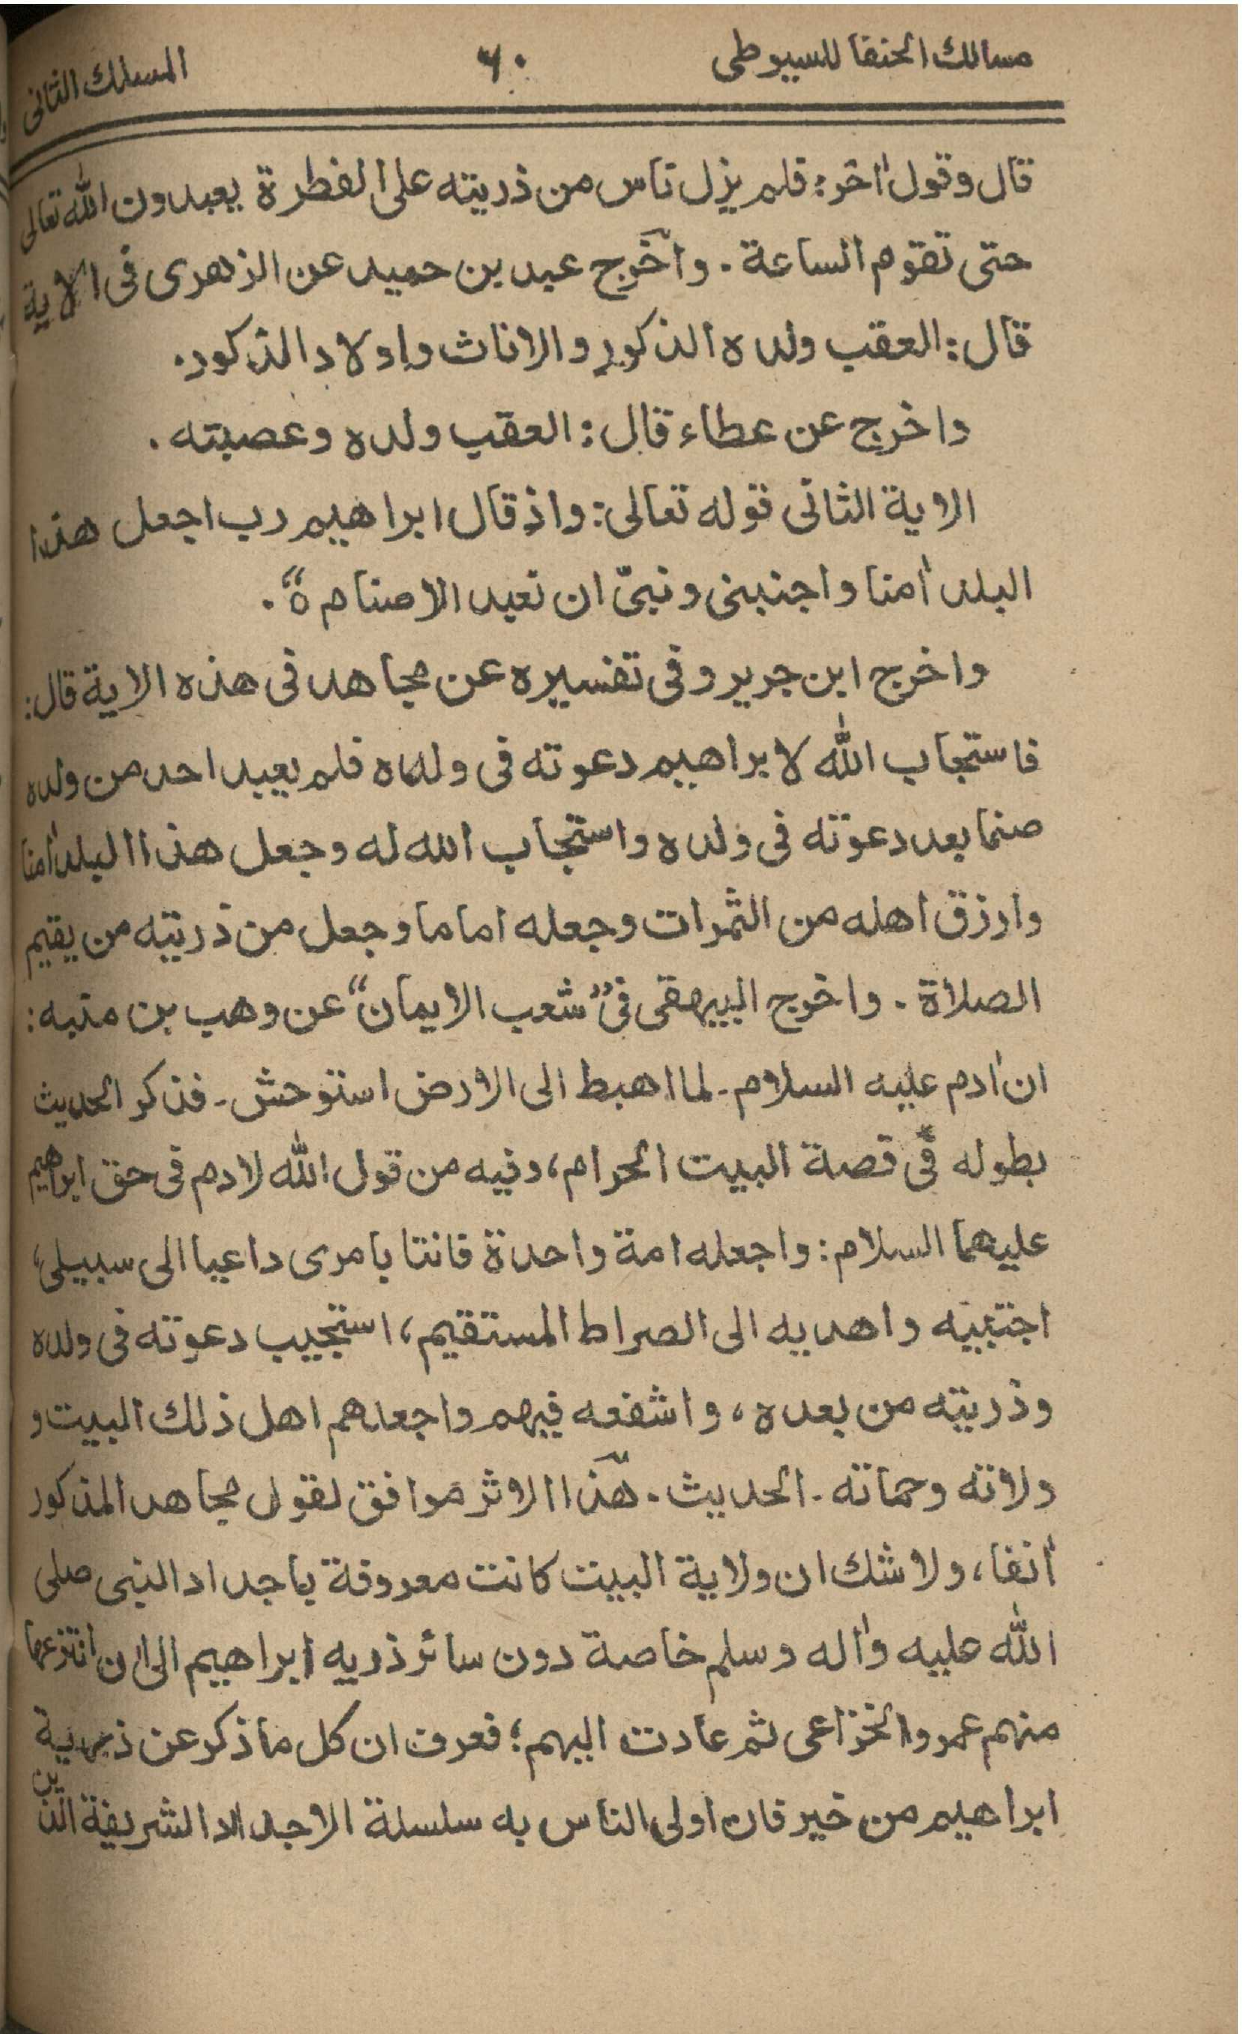 مسالك الحنفا للسيوطى ٦٠ المسلك الثانى
قال وقول اٰخر: فلم يزل ناس من ذريته على الفطرة يعبدون الله تعالى
حتى تقوم الساعة. واخرج عبد بن حميد عن الزهرى فى الاية
قال: العقب ولده الذكور والاناث واولاد الذكور.
واخرج عن عطاء قال: العقب ولده وعصبته.
الاية الثانى قوله تعالى: واذ قال ابراهيم رب اجعل هذا
البلد اٰمنا واجنبنى وبنىّ ان نعبد الاصنام ة“.
واخرج ابن جرير وفى تفسيره عن مجاهد فى هذه الاية قال:
فاستجاب الله لابراهيم دعوته فى ولده فلم يعبد احد من ولده
صنما بعد دعوته فى ولده واستجاب الله له وجعل هذا البلد اٰمنا
وارزق اهله من الثمرات وجعله اماما وجعل من ذريته من يقيم
الصلاة. واخرج البيهقى فى ”شعب الايمان“ عن وهب بن منبه:
ان اٰدم عليه السلام۔ لما اهبط الى الارض استوحش۔ فذكر الحديث
بطوله فى قصة البيت الحرام، وفيه من قول الله لادم فى حق ابراهيم
عليهما السلام: واجعله امة واحدة قانتا بامرى داعيا الى سبيلى،
اجتبيه واهديه الى الصراط المستقيم، استجيب دعوته فى ولده
وذريته من بعده، واشفعه فيهم واجعلهم اهل ذلك البيت و
ولاته وحماته۔ الحديث. هذا الاثر موافق لقول مجاهد المذكور
اٰنفا، ولا شك ان ولاية البيت كانت معروفة باجداد النبى صلى
الله عليه واٰله وسلم خاصة دون سائر ذريه ابراهيم الى ان انتزعها
منهم عمرو الخزاعى ثم عادت اليهم؛ فعرف ان كل ما ذكر عن ذرية
ابراهيم من خير فان اولى الناس به سلسلة الاجداد الشريفة الذين